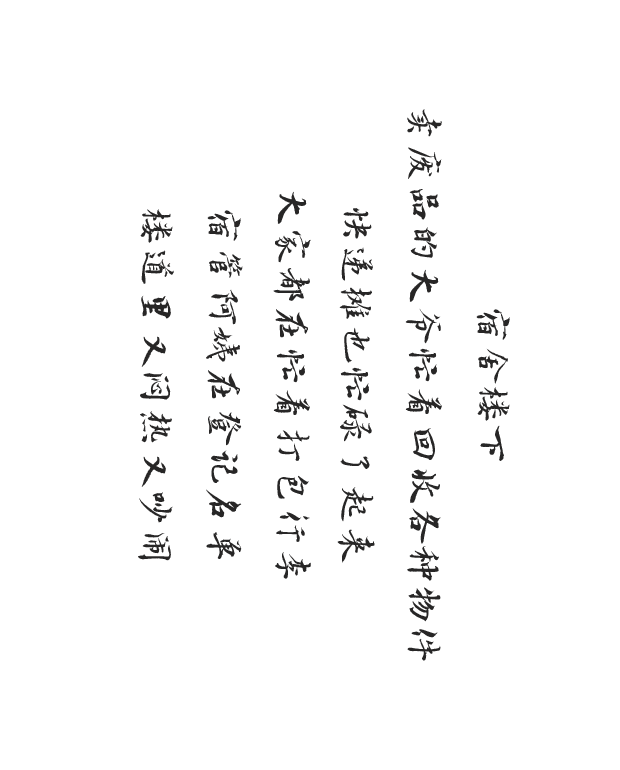 宿舍楼下
卖废品的大爷忙着回收各种物件
快递摊也忙碌了起来
大家都在忙着打包行李
宿管阿姨在登记名单
楼道里又闷热又吵闹